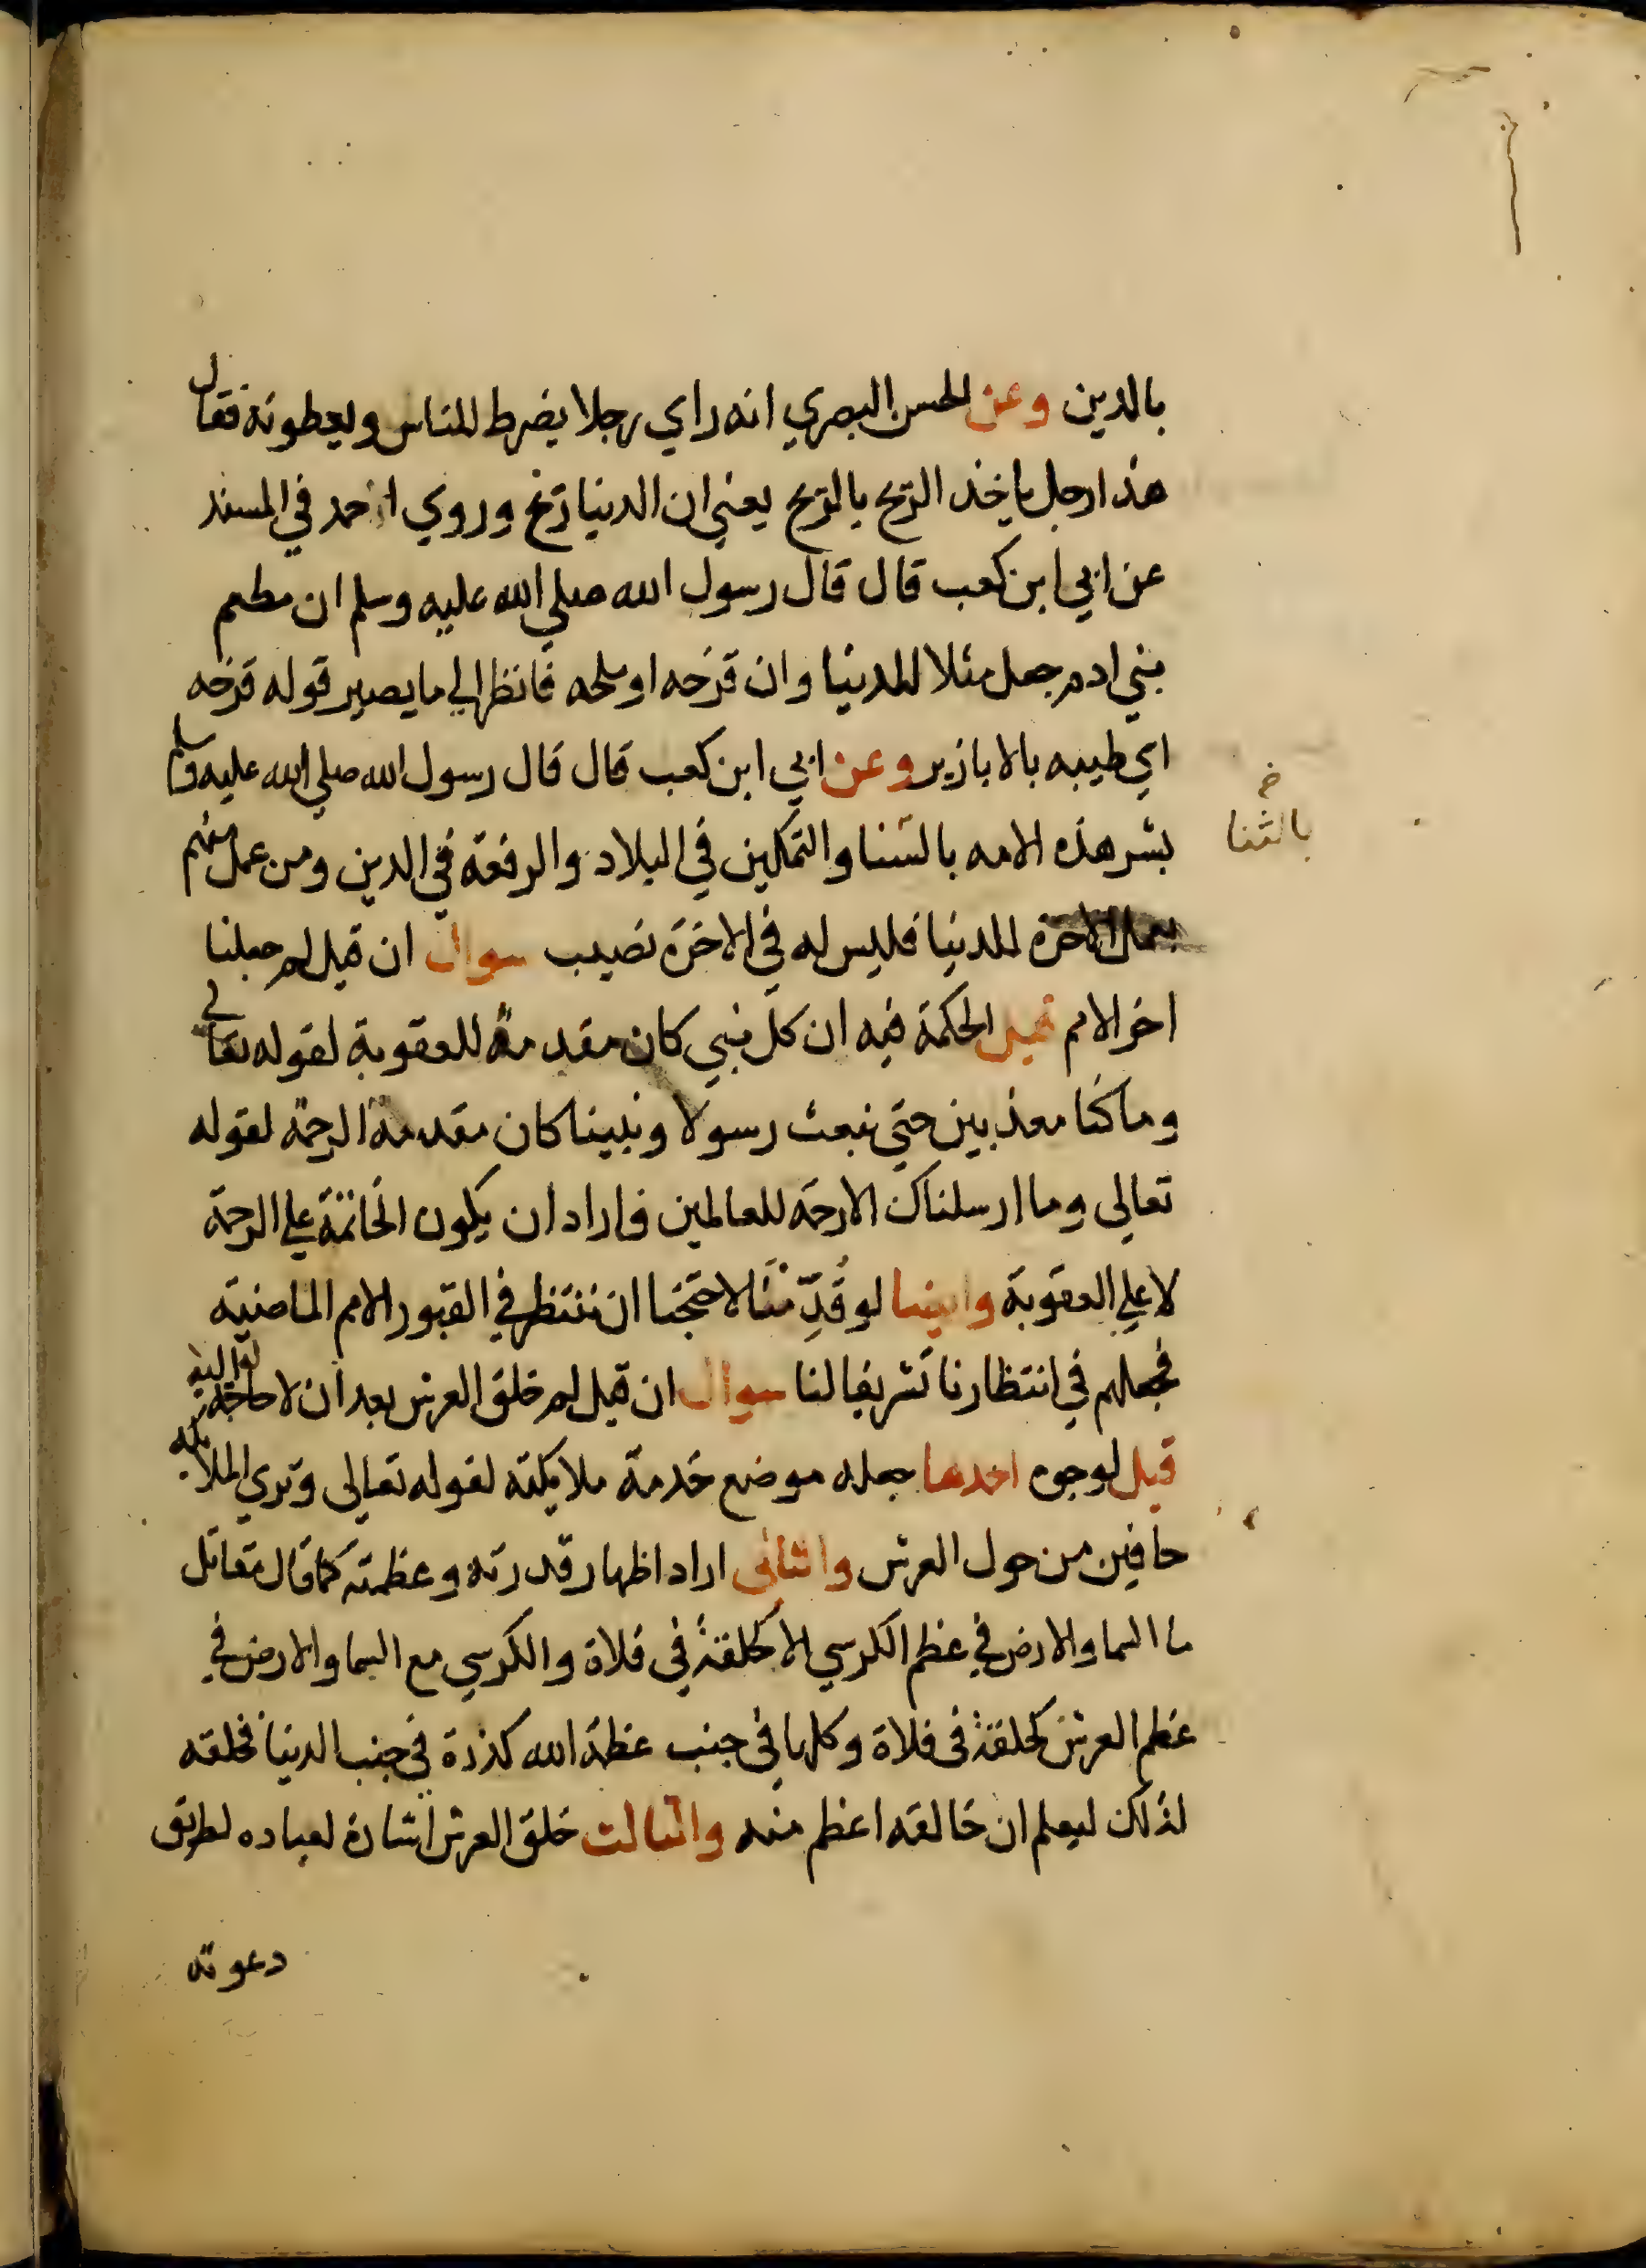 بالدين وعن الحسن البصري انه راي رجلا يضرط للناس ويعطونه فقال
هذا رجل ياخذ الريح بالريح يعني ان الدنيا ريح وروي احمد في المسند
عن ابي ابن كعب قال قال رسول الله صلي الله عليه وسلم ان مطعم
بني ادم جعل مثلا للدنيا وان قزحه او ملحه فانظر الي ما يصير قوله قزحه
اي طيبه بالابازير وعن ابي ابن كعب قال قال رسول الله صلي الله عليه وسلم
بشر هذه الامه بالسنا والتمكين في البلاد والرفعة في الدين ومن عمل منهم
بالثنا
بعمل الاخرة للدنيا فليس له في الاخرة نصيب سوال ان قيل لم جعلنا
اخر الامم قيل الحكمة فيه ان كل نبي كان مقدمة للعقوبة لقوله تعالي
وما كنا معذبين حتي نبعث رسولا ونبينا كان مقدمة الرحمة لقوله
تعالي وما ارسلناك الا رحمة للعالمين فاراد ان يكون الخاتمة علي الرحمة
لا علي العقوبة وايضا لو قدمنا لاحتجنا ان ننتظر في القبور الامم الماضية
فجعلهم في انتظارنا تشريفا لنا سوال ان قيل لم خلق العرش بعد ان لا حاجة له اليه
قيل لوجوه احدها جعله موضع خدمة ملايكته لقوله تعالي وتري الملايكه
حافين من حول العرش والثاني اراد اظهار قدرته وعظمته كما قال مقاتل
ما السما والارض في عظم الكرسي الا كحلقة في فلاة والكرسي مع السما والارض في
عظم العرش كحلقة في فلاة وكلها في جنب عظمة الله كذرة في جنب الدنيا فخلقه
لذلك ليعلم ان خالقه اعظم منه والثالث خلق العرش اشارة لعباده لطريق
دعوته